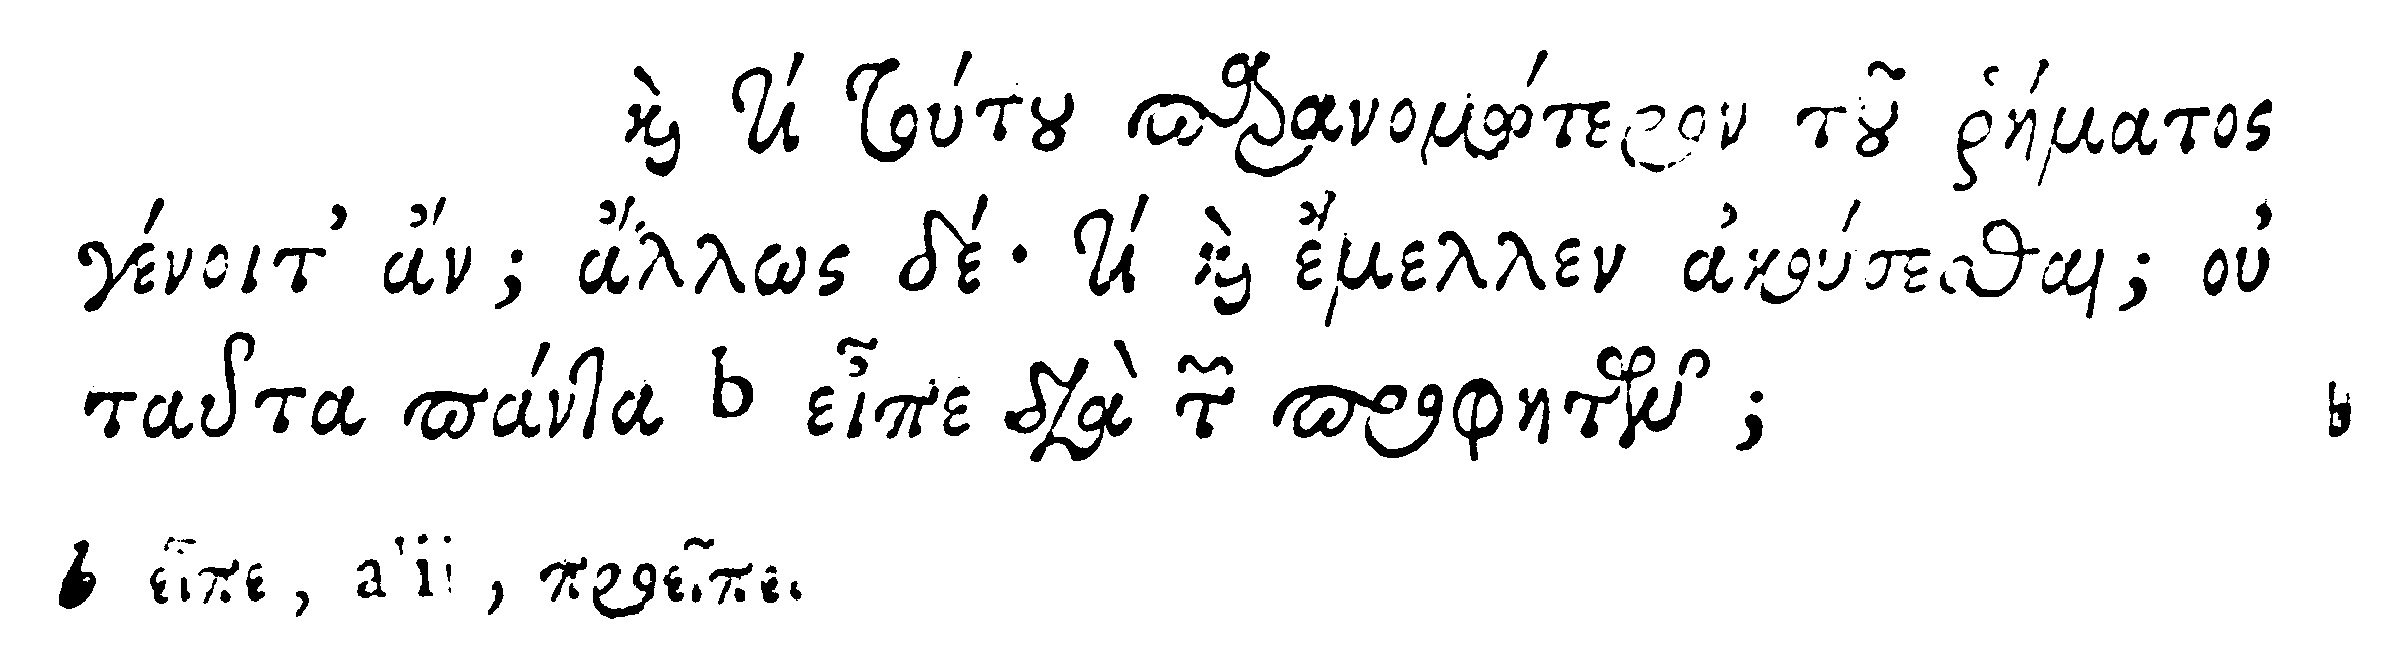 καὶ τί τούτου παρανομώτερον τοῦ ῥήματος
γένοιτ᾽ ἄν; ἄλλως δέ· τί καὶ ἔμελλεν ἀκούσεσθαι; οὐ
ταῦτα πάντα b εἶπε διὰ τῶν προφητῶν; b
b εἶπε, alii, προεῖπε.